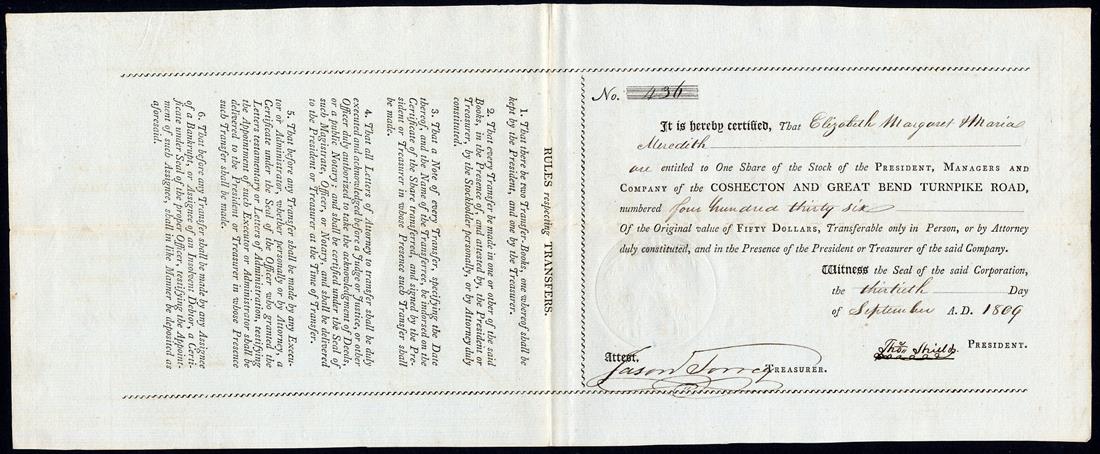 No. 436
It is hereby certified, That Elizabeth Margaret & Maria
Meredith
are entitled to One Share of the Stock of the PRESIDENT, MANAGERS AND
COMPANY of the COSHECTON AND GREAT BEND TURNPIKE ROAD,
numbered four hundred thirty six
Of the original value of FIFTY DOLLARS, Transferable only in Person, or by Attorney
duly constituted, and in the Presence of the President or Treasurer of the said Company.
Witness the Seal of the said Corporation,
the thirtieth Day
of September A.D. 1809
Shields PRESIDENT.
Attest.
Jason Torrey TREASURER.
RULES respecting TRANSFERS.
1. That there be two Transfer-Books, one whereof shall be
kept by the President, and one by the Treasurer.
2. That every Transfer be made in one or other of the said
Books, in the Presence of, and attested by, the President or
Treasurer, by the Stockholder personally, or by Attorney duly
constituted.
3. That a Note of every Transfer, specifying the Date
thereof, and the Name of the Transferree, be indorsed on the
Certificate of the Share transferred, and signed by the Pre-
sident or Treasurer in whose Presence such Transfer shall
be made.
4. That all Letters of Attorney to transfer shall be duly
executed and acknowledged before a Judge or Justice, or other
Officer duly authorized to take the acknowledgment of Deeds,
or a public Notary; and shall be certified under the Seal of
such Magistrate, Officer, or Notary, and shall be delivered
to the President or Treasurer at the Time of Transfer.
5. That before any Transfer shall be made by any Execu-
tor or Administrator, whether personally or by Attorney, a
Certificate under the Seal of the Officer who granted the
Letters testamentary or Letters of Administration, testifying
the Appointment of such Executor or Administrator shall be
delivered to the President or Treasurer in whose Presence
such Transfer shall be made.
6. That before any Transfer shall be made by any Assignee
of a Bankrupt, or Assignee of an Insolvent Debtor, a Certi-
ficate under Seal of the proper Officer, testifying the Appoint-
ment of such Assignee, shall in like Manner be deposited as
aforesaid.